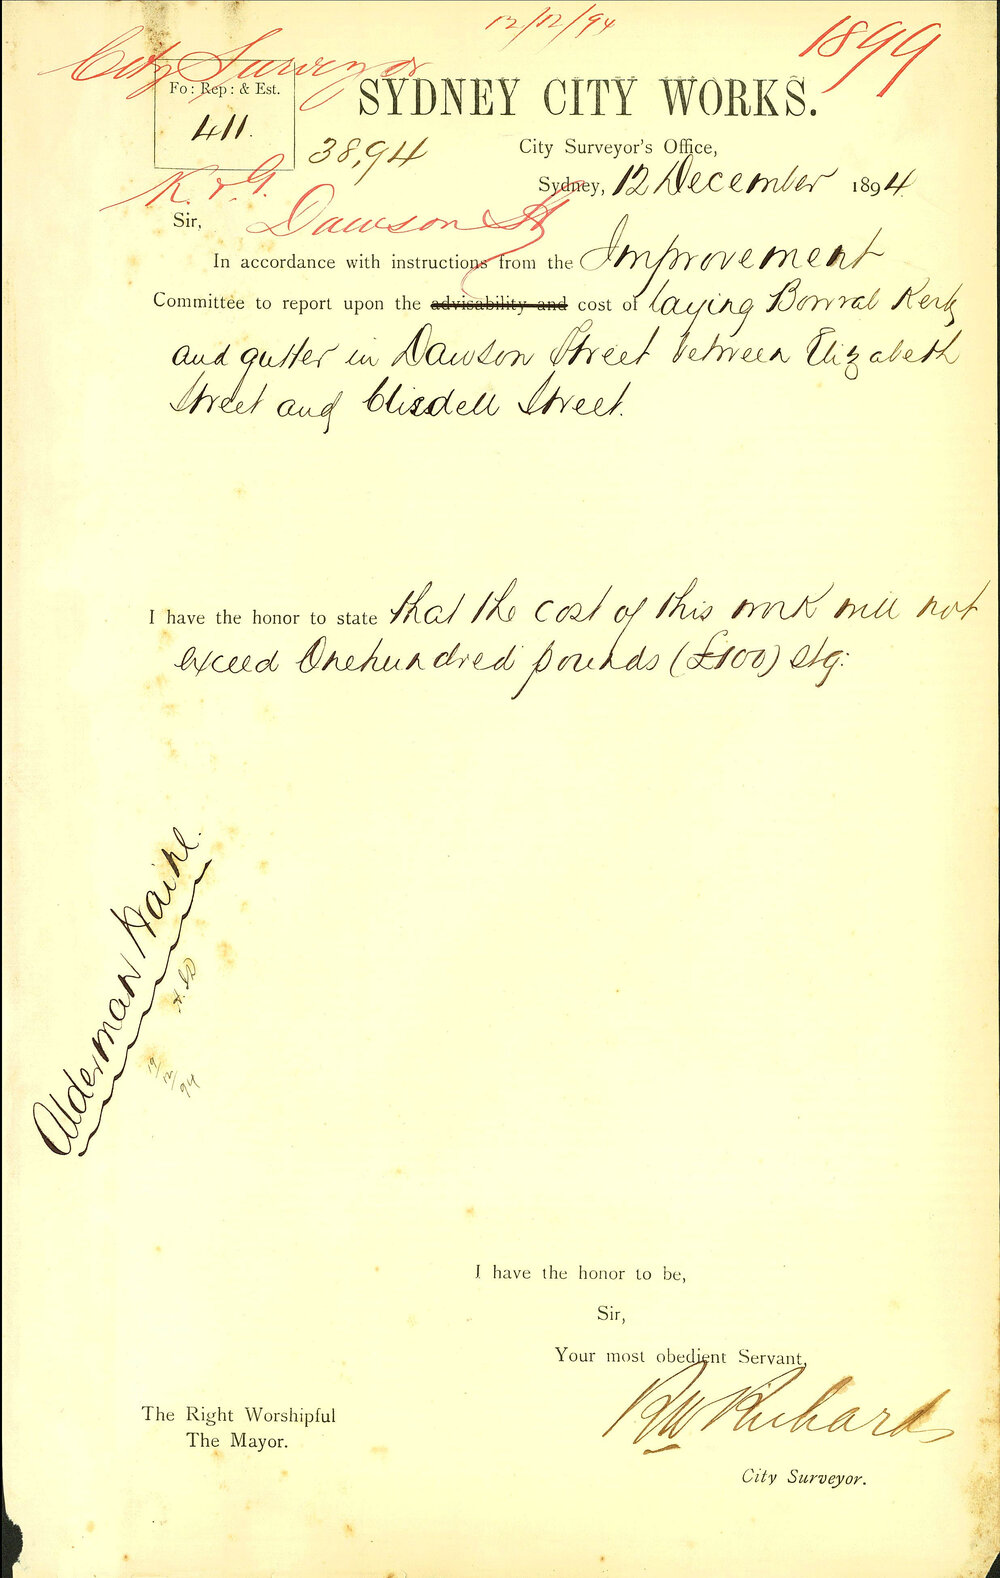 12/12/94
1899
City Surveyor
Fo: Rep: & Est.
411.
SYDNEY CITY WORKS.
38,94
City Surveyor's Office,
Sydney, 12 December 1894
K. & G.
Sir,
Dawson St
In accordance with instructions from the Improvement
Committee to report upon the advisability and cost of laying Bowral Kerb
and gutter in Dawson Street between Elizabeth
Street and Clisdell Street.
I have the honor to state that the cost of this work will not
exceed One hundred pounds (£100) stg:
Alderman
19/12/94
I have the honor to be,
Sir,
Your most obedient Servant,
RW Richards
The Right Worshipful
The Mayor.
City Surveyor.